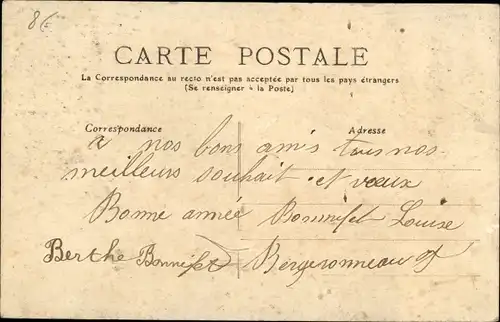 86
CARTE POSTALE
La Correspondance au recto n'est pas acceptée par tous les pays étrangers
(Se renseigner à la Poste)
Correspondance Adresse
a nos bons amis tous nos
meilleurs souhait et vœux
Bonne année Bonnifet Louise
Berthe Bonnifet Bergeronneau